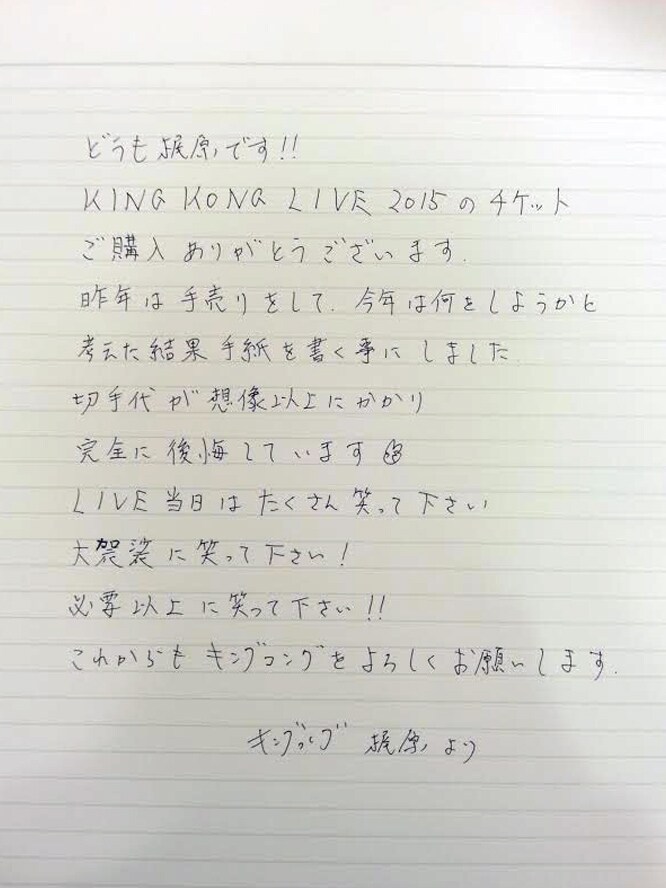 どうも梶原です!!
KING KONG LIVE 2015のチケット
ご購入ありがとうございます.
昨年は手売りをして.今年は何をしようかと
考えた結果手紙を書く事にしました
切手代が想像以上にかかり
完全に後悔しています
LIVE当日はたくさん笑って下さい
大袈裟に笑って下さい!
必要以上に笑って下さい!!
これからもキングコングをよろしくお願いします.
キングコング 梶原より